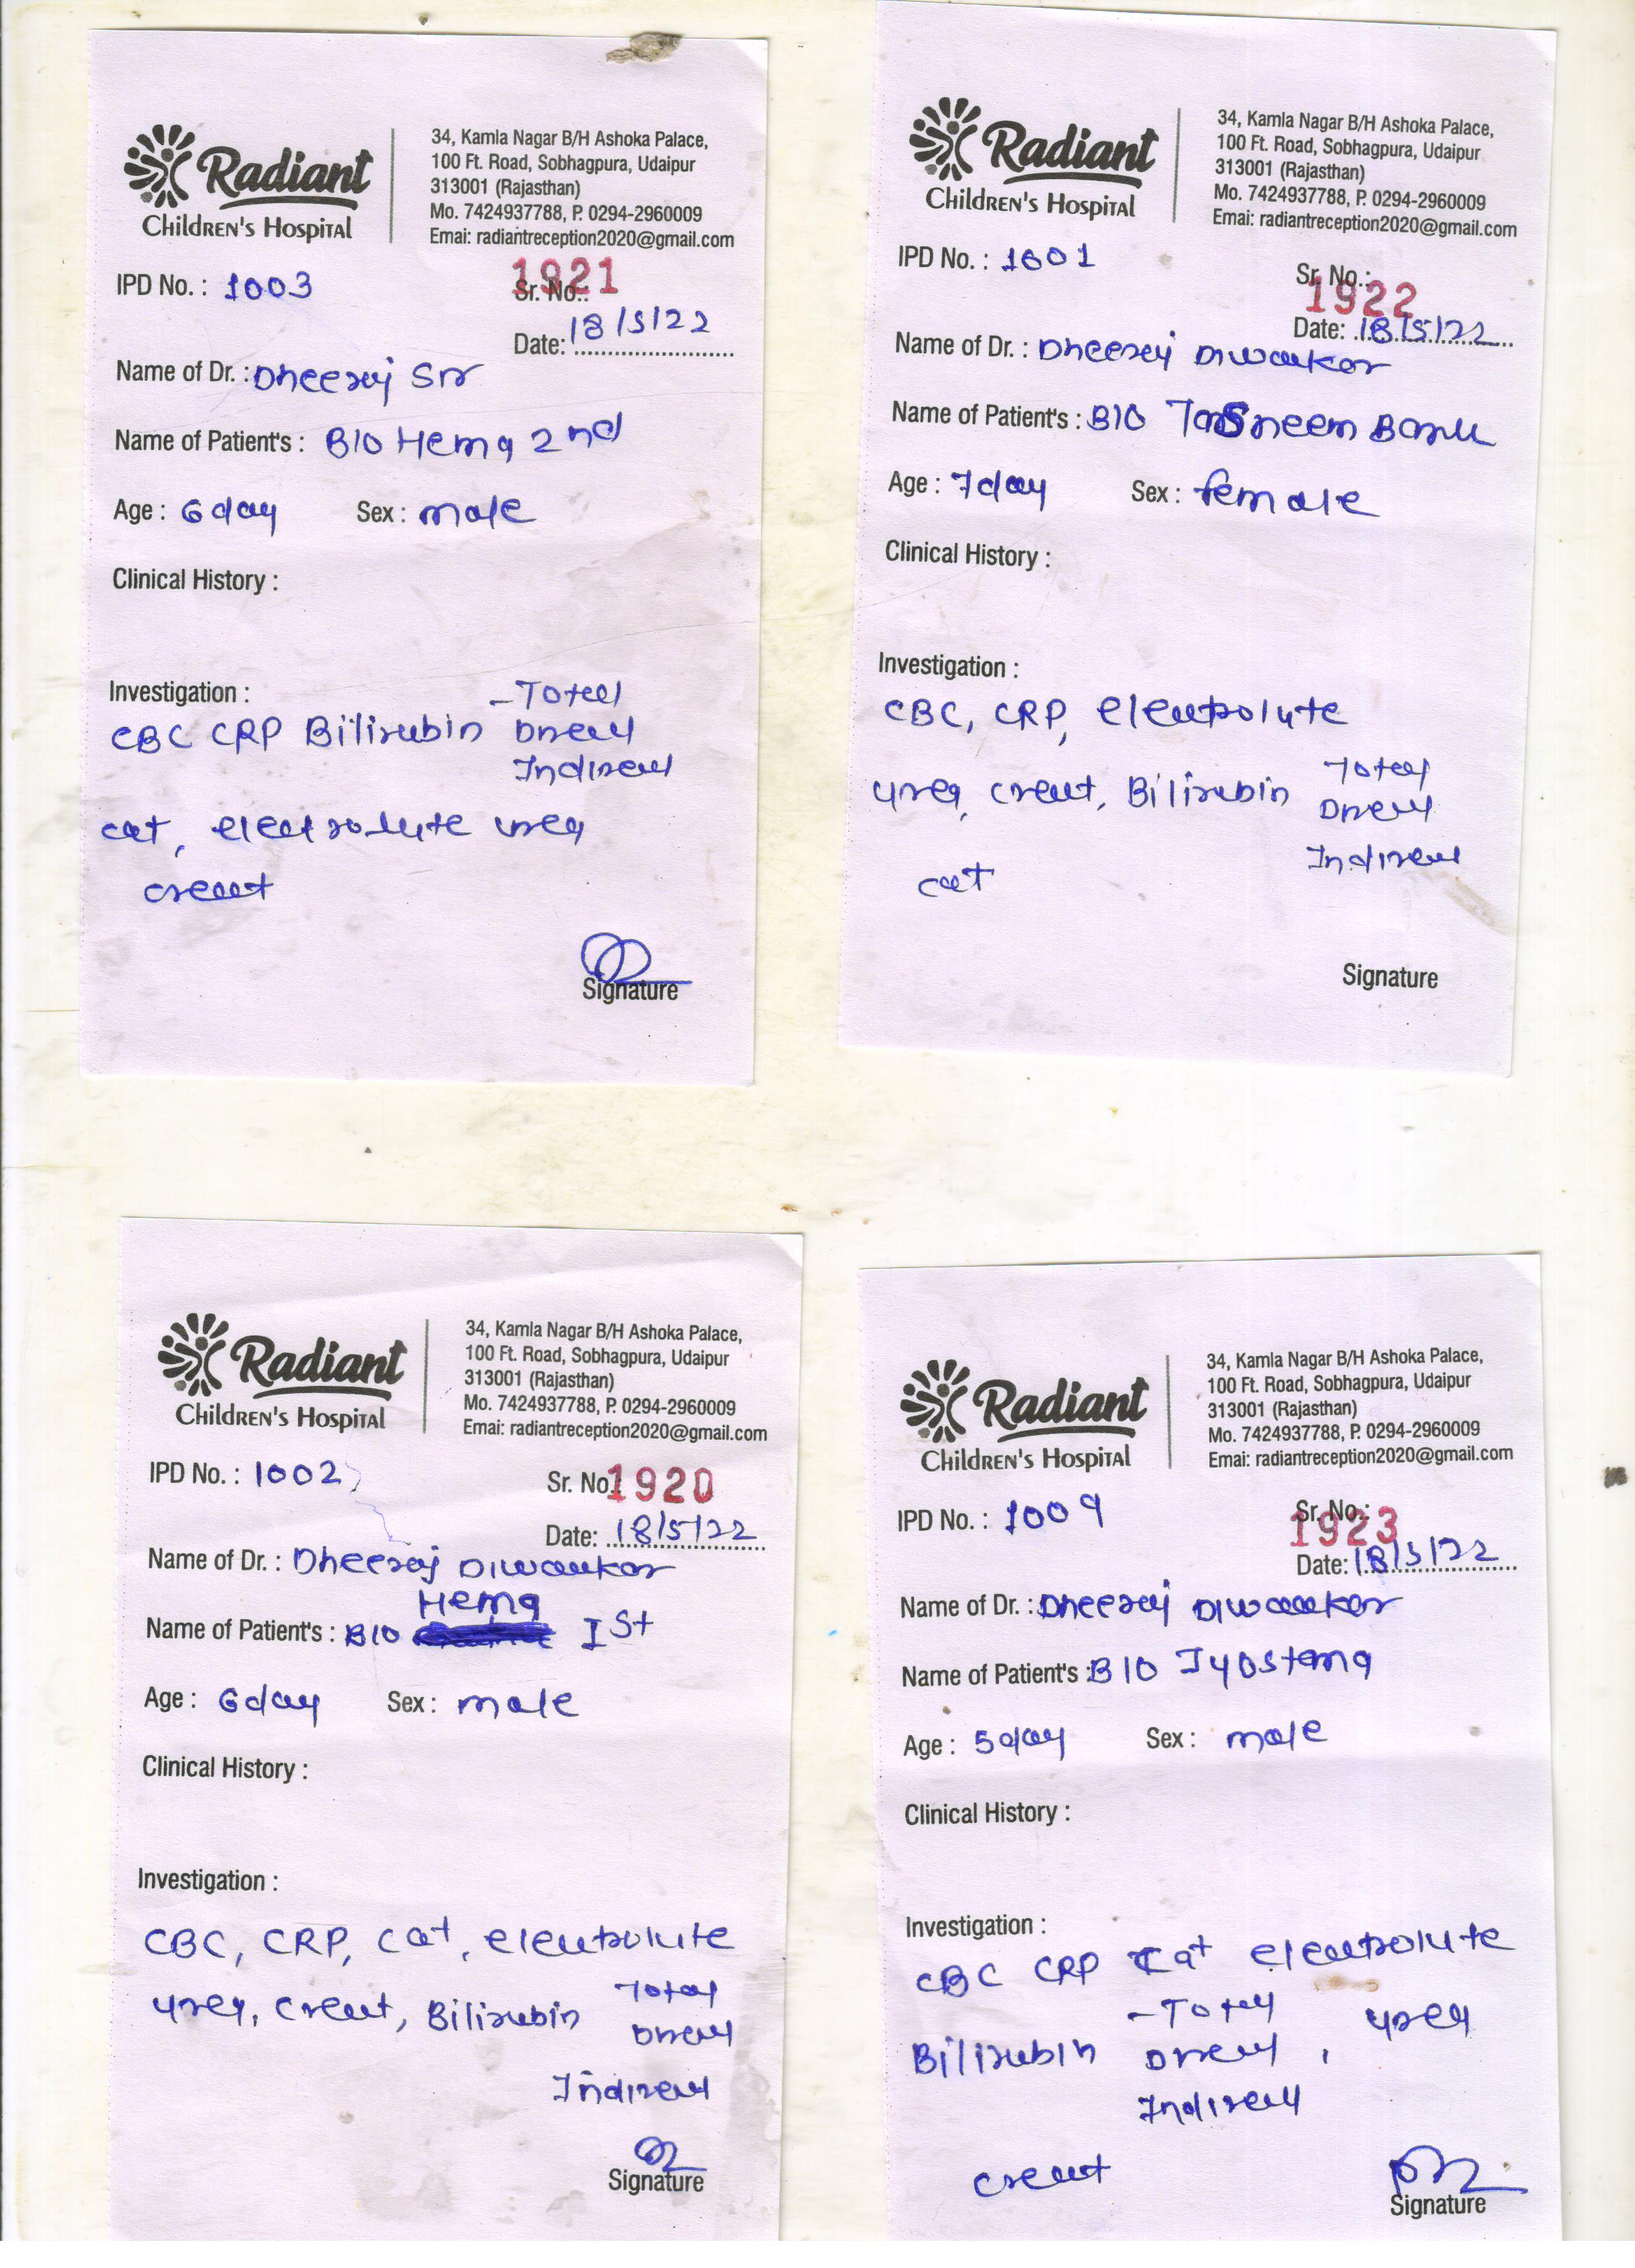 Radiant
Children's Hospital
34, Kamla Nagar B/H Ashoka Palace,
100 Ft. Road, Sobhagpura, Udaipur
313001 (Rajasthan)
Mo. 7424937788, P. 0294-2960009
Emai: radiantreception2020@gmail.com
IPD No. : 1003
Sr. No.: 1921
Date: 18/5/22
Name of Dr. : Dheeraj Sir
Name of Patient's : B/O Hema 2nd
Age : 6day Sex : male
Clinical History :
Investigation :
CBC CRP Bilirubin - Total
Direct
Indirect
cat, electrolute urea
creat
Signature
Radiant
Children's Hospital
34, Kamla Nagar B/H Ashoka Palace,
100 Ft. Road, Sobhagpura, Udaipur
313001 (Rajasthan)
Mo. 7424937788, P. 0294-2960009
Emai: radiantreception2020@gmail.com
IPD No. : 1001
Sr. No.: 1922
Date: 18/5/22
Name of Dr. : Dheeraj Diwakar
Name of Patient's : B/O Tasneem Banu
Age : 7day Sex : female
Clinical History :
Investigation :
CBC, CRP, electrolute
urea, creat, Bilirubin Total
Direct
Indirect
cat
Signature
Radiant
Children's Hospital
34, Kamla Nagar B/H Ashoka Palace,
100 Ft. Road, Sobhagpura, Udaipur
313001 (Rajasthan)
Mo. 7424937788, P. 0294-2960009
Emai: radiantreception2020@gmail.com
IPD No. : 1002
Sr. No.: 1920
Date: 18/5/22
Name of Dr. : Dheeraj Diwakar
Name of Patient's : B/O Hema Ist
Age : 6day Sex : male
Clinical History :
Investigation :
CBC, CRP, cat, electrolute
urea, creat, Bilirubin Total
Direct
Indirect
Signature
Radiant
Children's Hospital
34, Kamla Nagar B/H Ashoka Palace,
100 Ft. Road, Sobhagpura, Udaipur
313001 (Rajasthan)
Mo. 7424937788, P. 0294-2960009
Emai: radiantreception2020@gmail.com
IPD No. : 1009
Sr. No.: 1923
Date: 18/5/22
Name of Dr. : Dheeraj Diwakar
Name of Patient's : B/O Jyostana
Age : 5day Sex : male
Clinical History :
Investigation :
CBC CRP Cat electrolute
Bilirubin - Total
Direct , urea
Indirect
creat
Signature